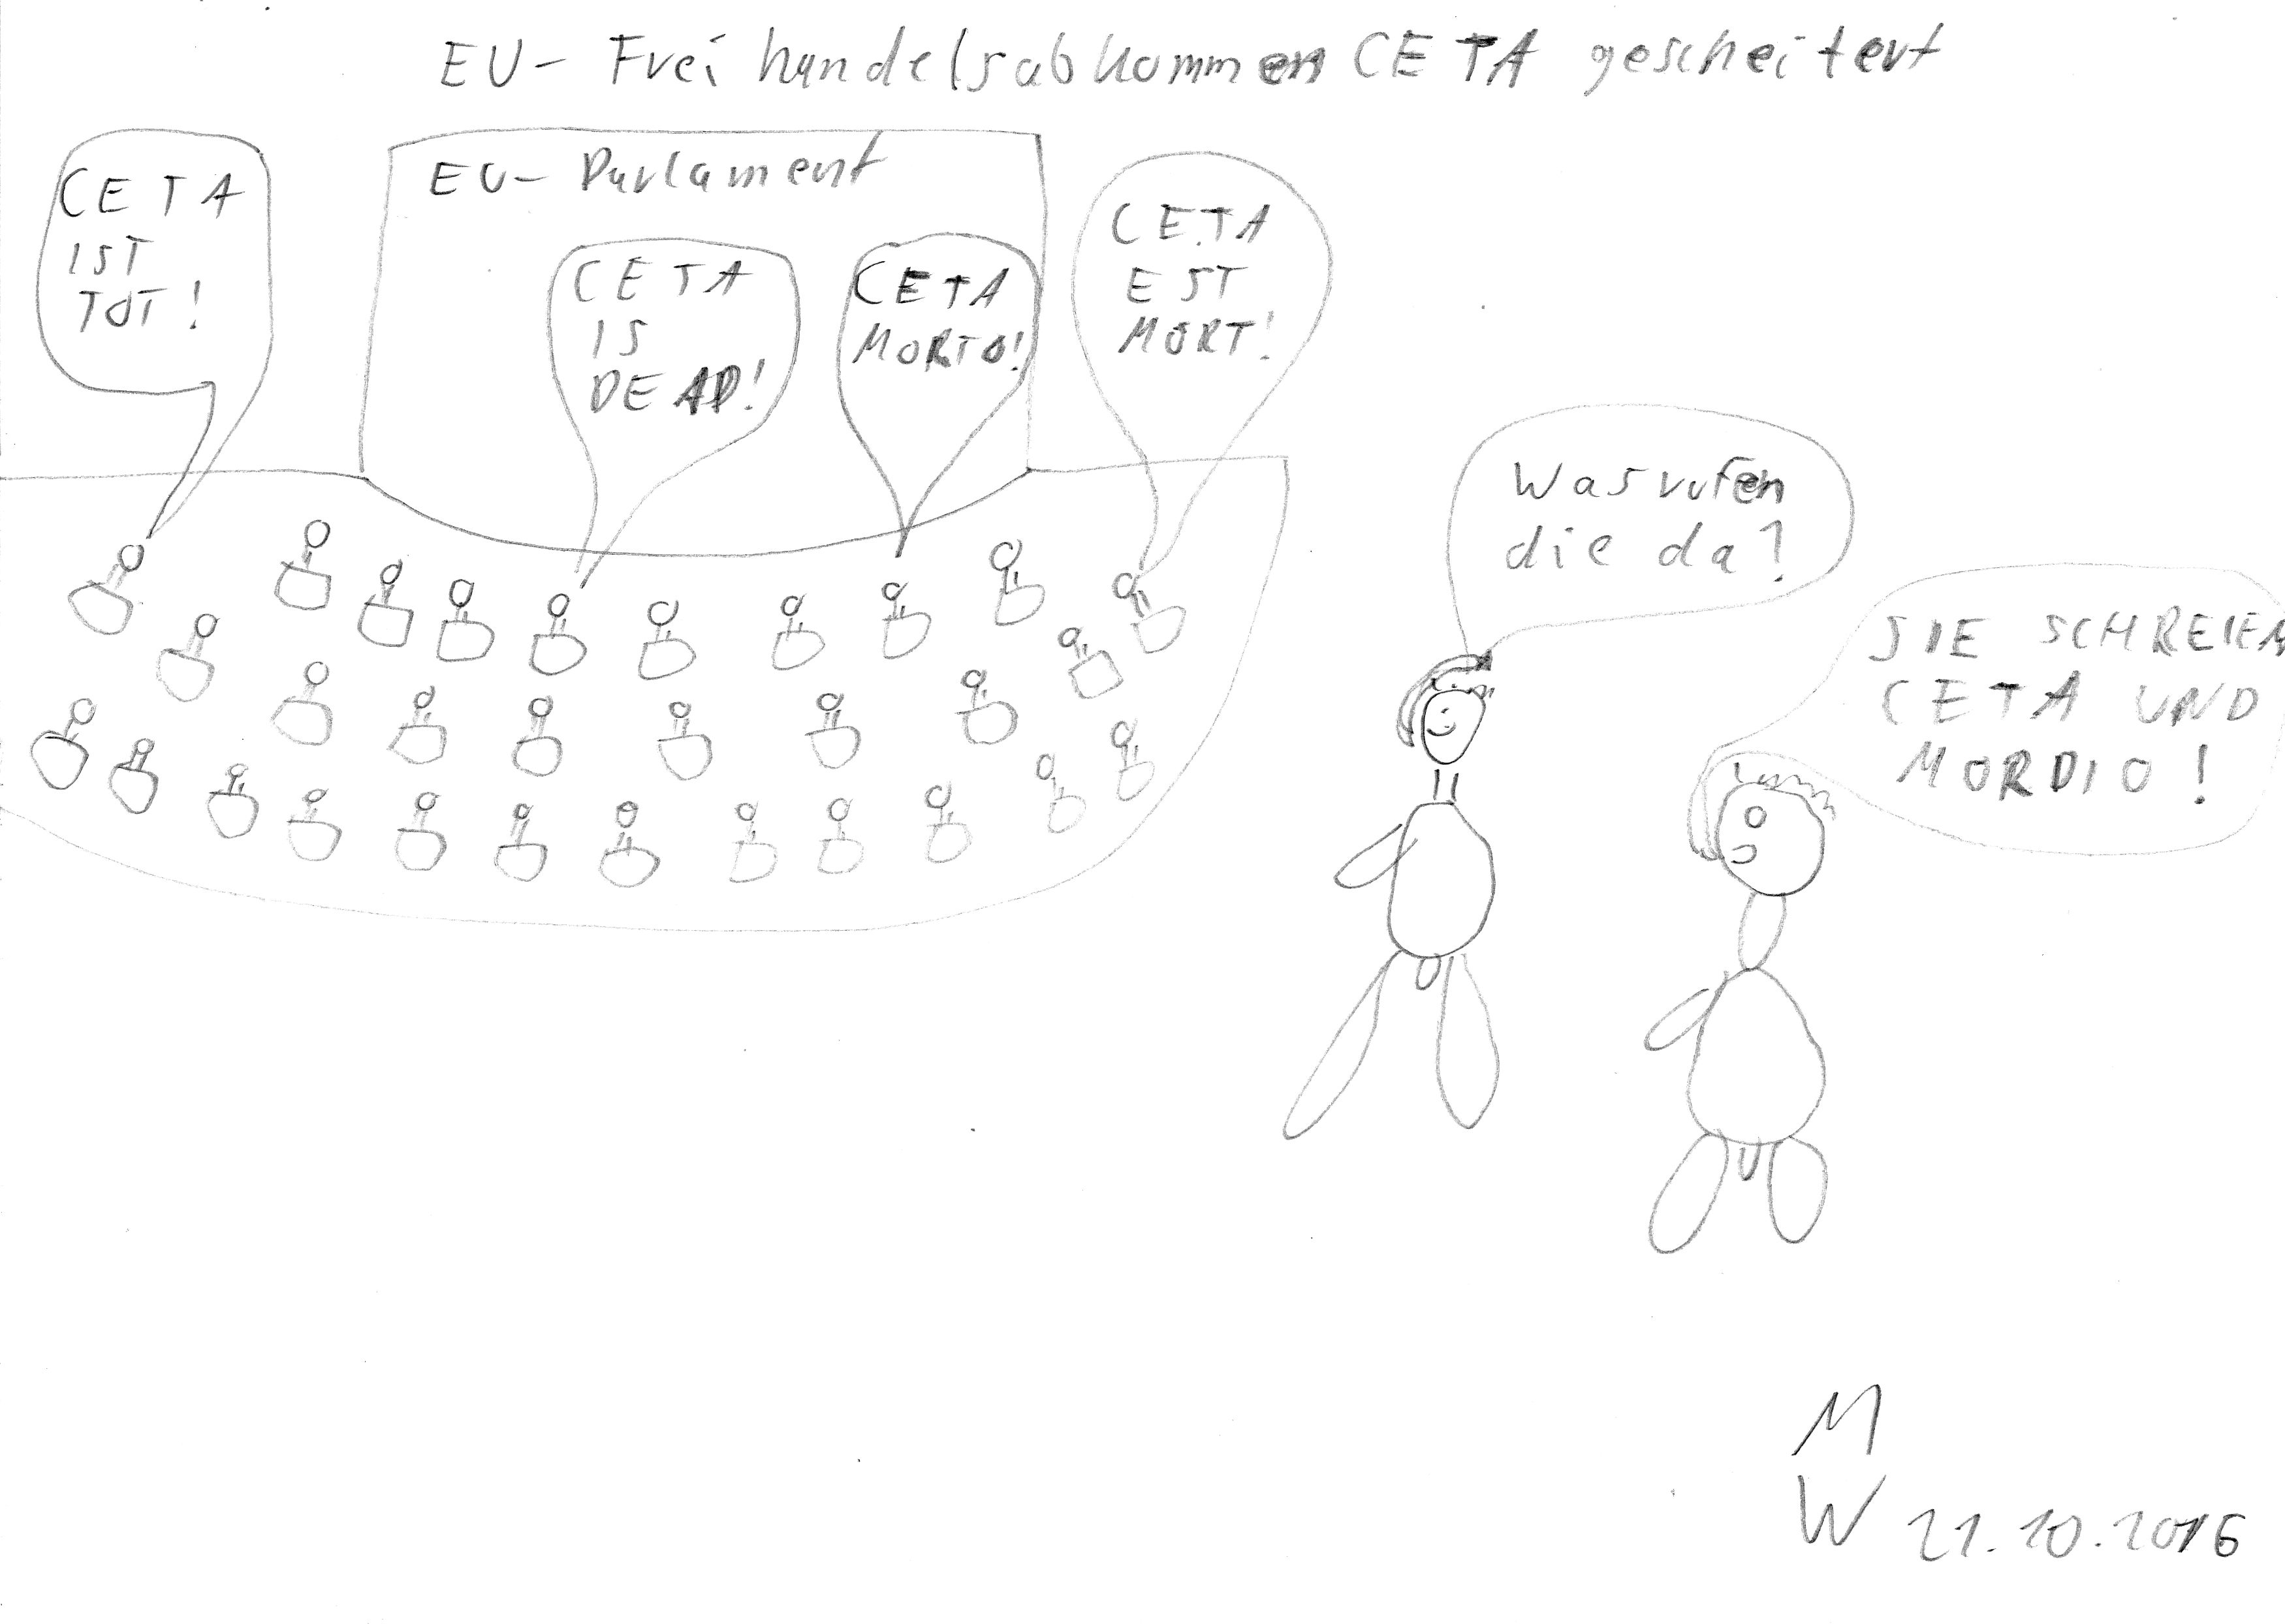 EU- Freihandelsabkommen CETA gescheitert
CETA
IST
TOT!
EU- Parlament
CETA
IS
DEAD!
CETA
MORTO!
CETA
EST
MORT!
Was rufen
die da?
SIE SCHREIEN
CETA UND
MORDIO!
M
W 21.10.2016